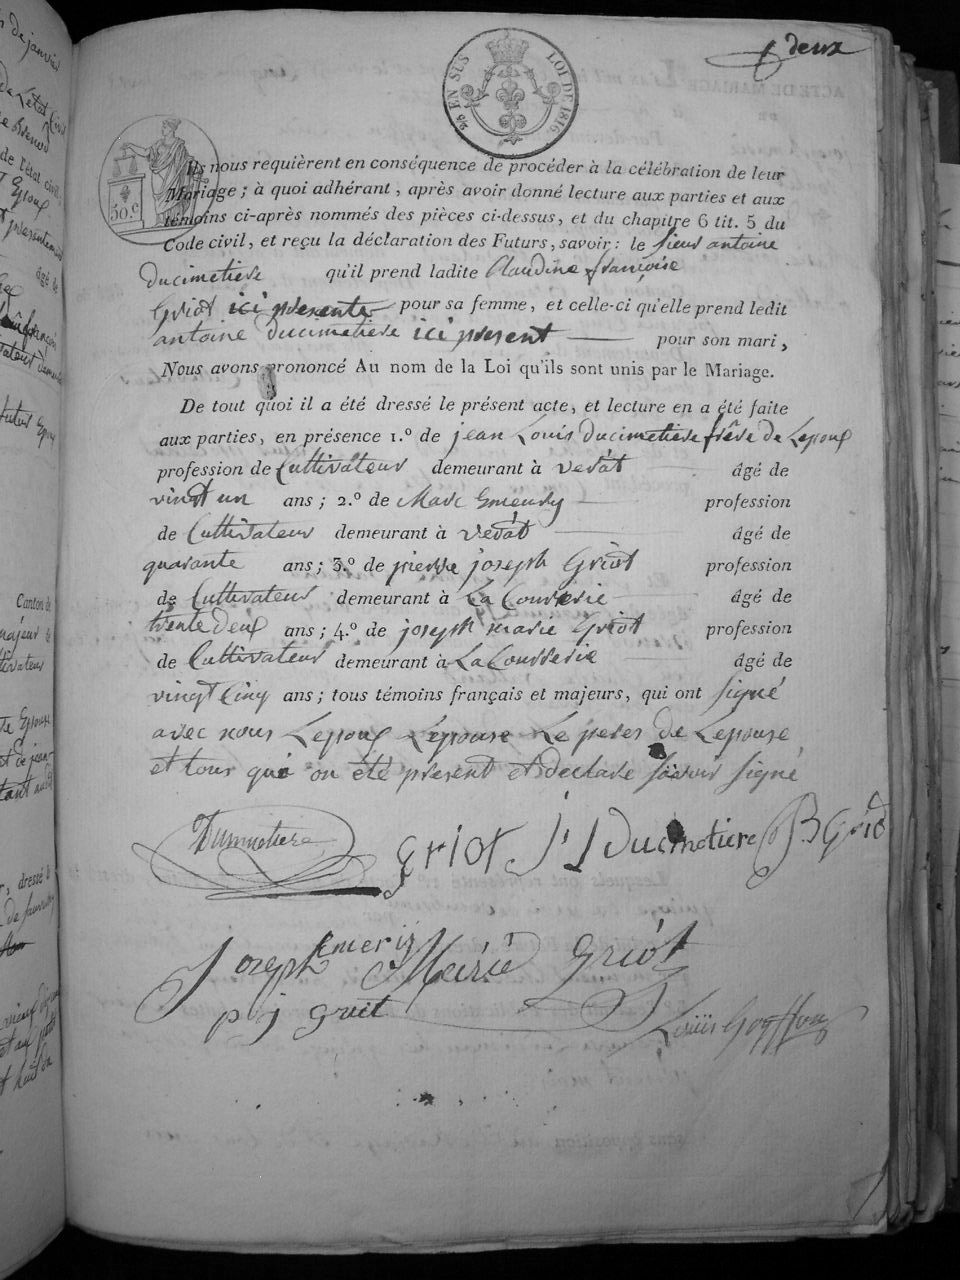 deux
2/10 EN SUS LOI DE 1816
50.c
Ils nous requièrent en conséquence de procéder à la célébration de leur
Mariage ; à quoi adhérant , après avoir donné lecture aux parties et aux
témoins ci-après nommés des pièces ci-dessus, et du chapitre 6 tit. 5 du
Code civil, et reçu la déclaration des Futurs, savoir : le sieur antoine
ducimetiere qu'il prend ladite Claudine françoise
Griot ici presente pour sa femme, et celle-ci qu'elle prend ledit
antoine Ducimetiere ici present pour son mari ,
Nous avons prononcé Au nom de la Loi qu'ils sont unis par le Mariage.
De tout quoi il a été dressé le présent acte, et lecture en a été faite
aux parties, en présence 1.º de jean Louis ducimetiere frère de Lepoux
profession de Cultivateur demeurant à vesat âgé de
vingt un ans ; 2.º de Marc Emeudy profession
de Cultivateur demeurant à vesat âgé de
quarante ans ; 3.º de pierre joseph Griot profession
de Cultivateur demeurant à La Courserie âgé de
trente deux ans ; 4.º de joseph marie Griot profession
de Cultivateur demeurant à La Courserie âgé de
vingt Cinq ans ; tous témoins français et majeurs, qui ont signé
avec nous Lepoux Lepouse Le peres de Lepouse
et tous qui on été present et declare savoir signé
Dumnetiere griot j l Ducimetiere B Griot
Emeriy
Joseph Marie Griot
p j griot
Louis Goyffon